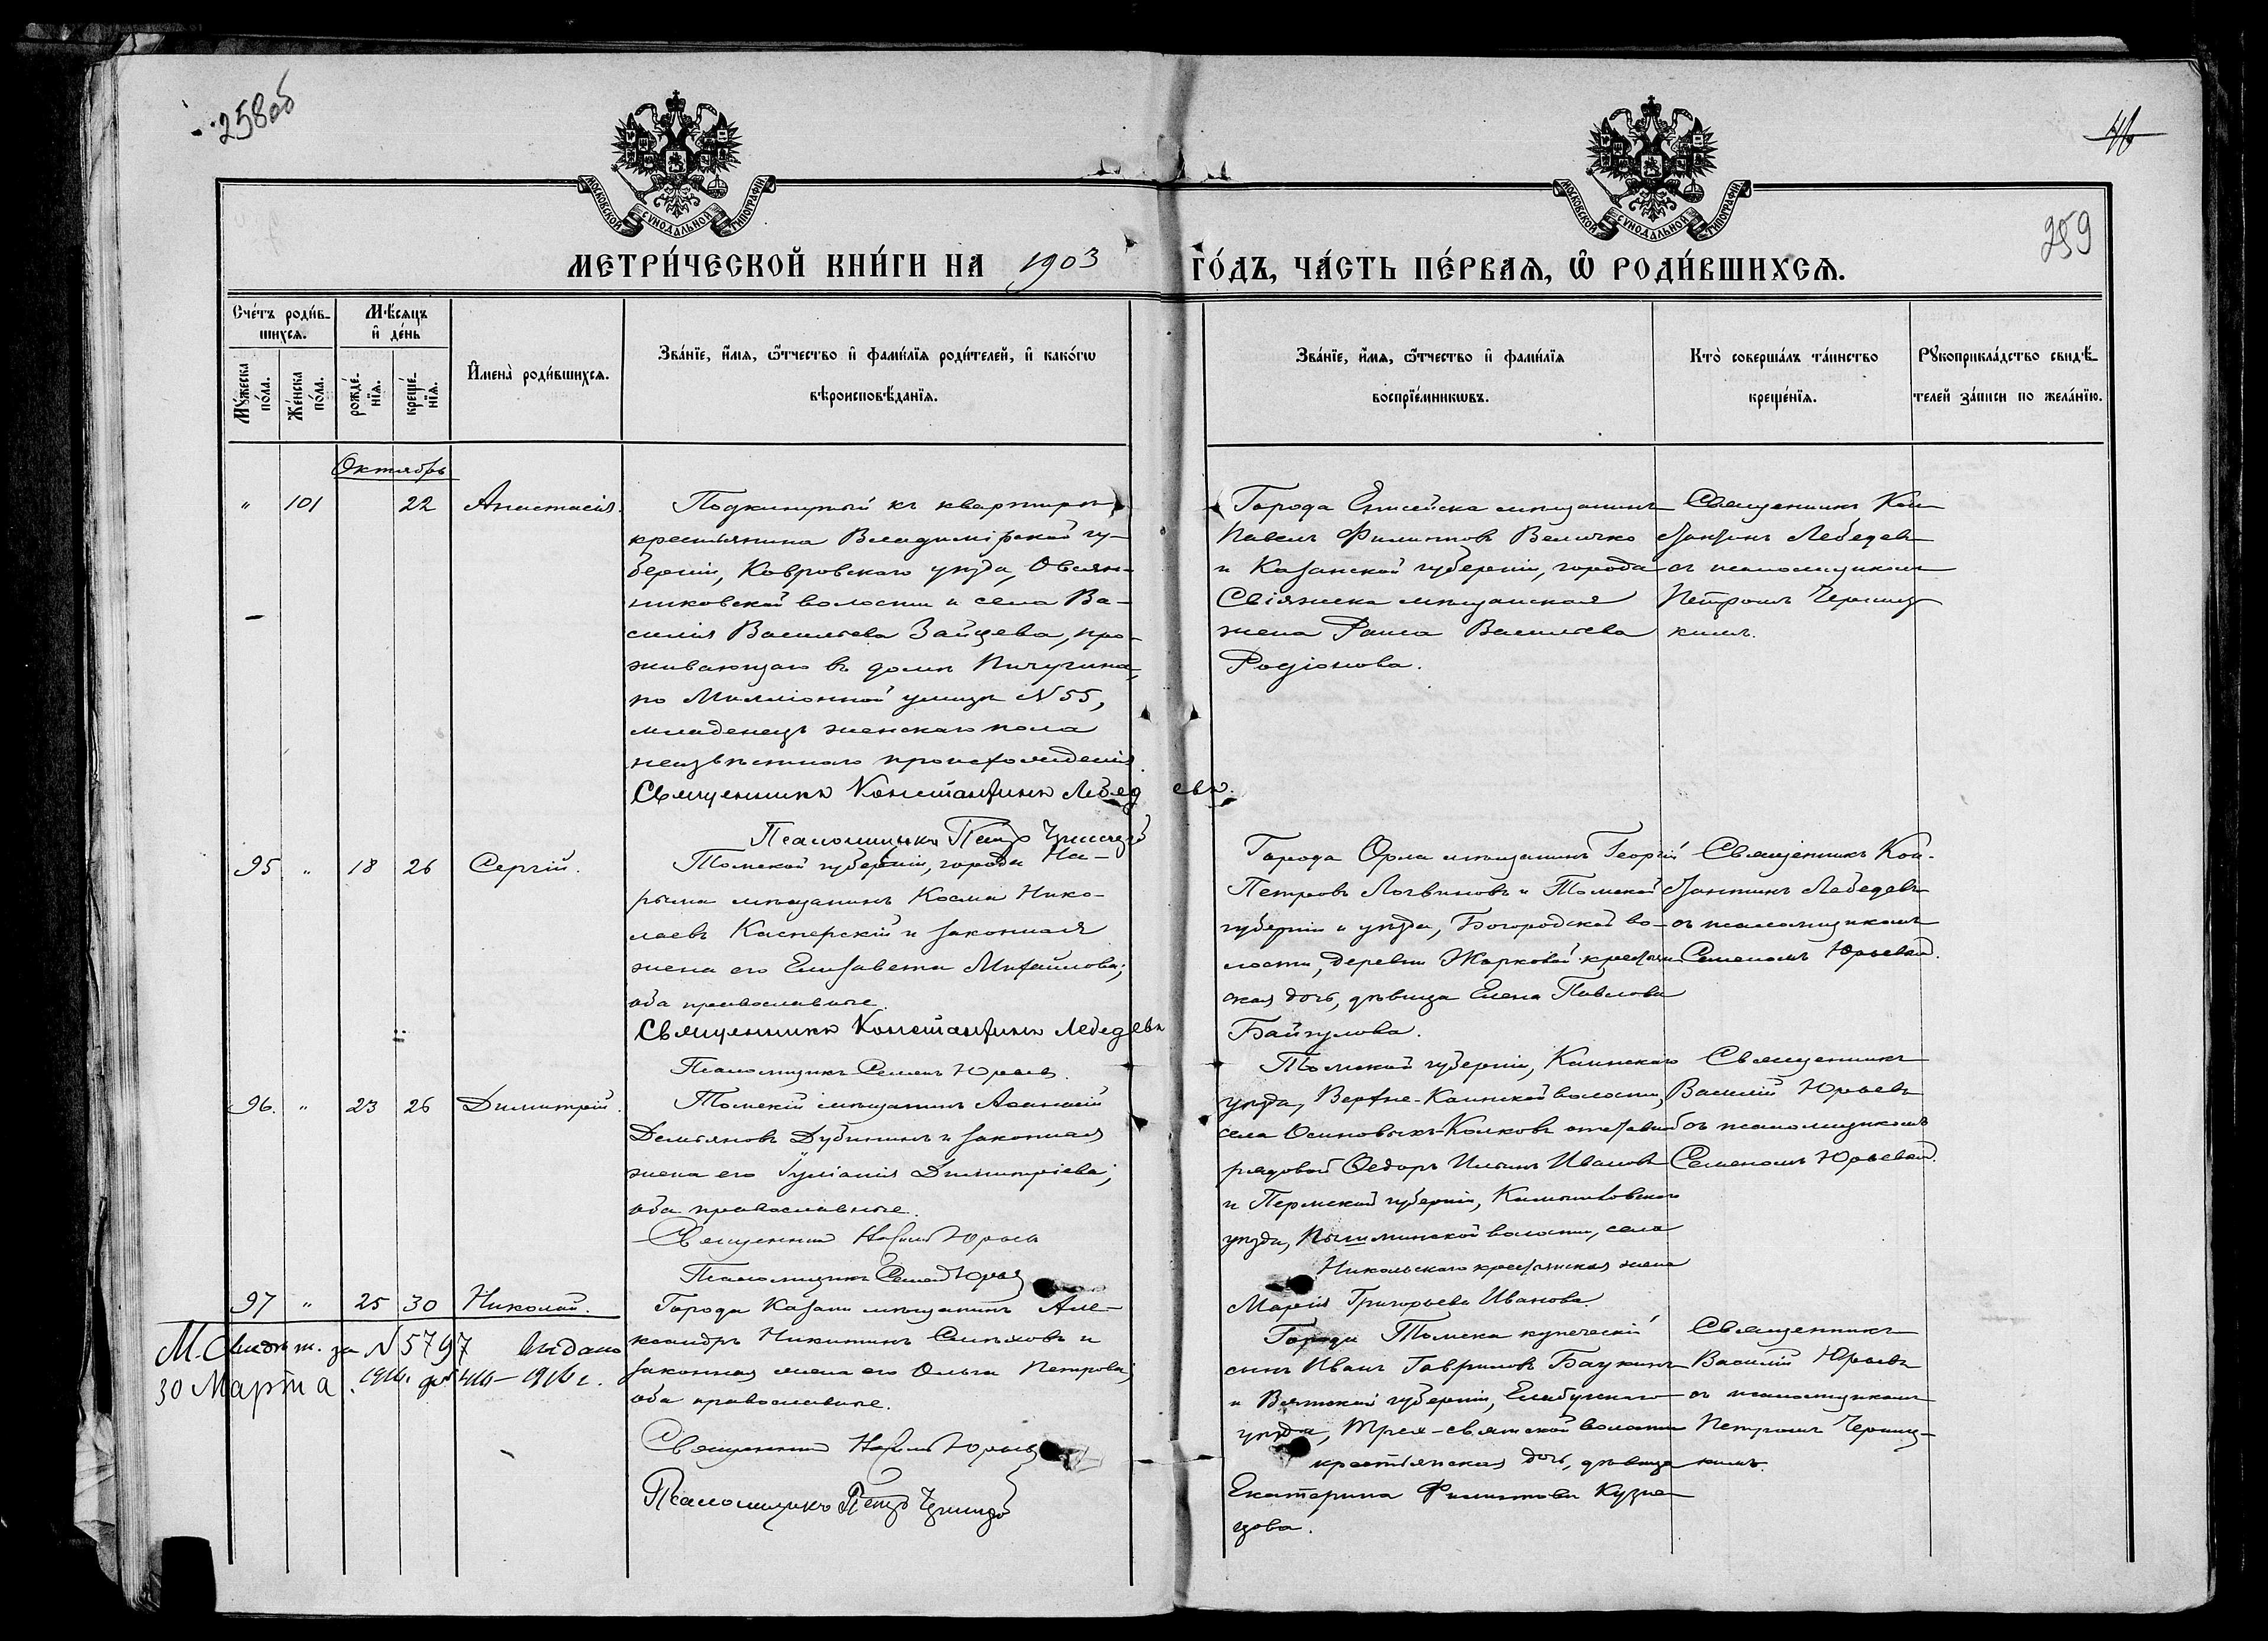 258об
46
259
МОСКОВСКОЙ СУНОДАЛЬНОЙ ТИПОГРАФІИ
МОСКОВСКОЙ СУНОДАЛЬНОЙ ТИПОГРАФІИ
МЕТРИ́ЧЕСКОЙ КНИ́ГИ НА 1903 ГО́ДЪ, ЧА́СТЬ ПЕ́РВАѦ, Ѡ РОДИ́ВШИХСѦ.
Сче́тъ роди́в-
шихсѧ.
Мѣ́сѧцъ
и҆ де́нь
Мꙋ́жеска
по́ла.
Же́нска
по́ла.
рожде́-
нїѧ.
креще́-
нїѧ.
И҆мена̀ роди́вшихсѧ.
Зва́нїе, и҆́мѧ, ѻ҆́тчество и҆ фами́лїѧ роди́телей, и҆ како́гѡ
вѣроисповѣ́данїѧ.
Зва́нїе, и҆́мѧ, ѻ҆́тчество и҆ фами́лїѧ
воспрїе́мникѡвъ.
Кто̀ соверша́лъ та́инство
креще́нїѧ.
Рꙋкоприкла́дство свидѣ́-
телей за́писи по жела́нїю.
Октябрь
" 101 22 Анастасія.
Подкинутый къ квартирѣ
крестьянина Владимірской гу-
берніи, Ковровскаго уѣзда, Овсян-
никовской волости и села Ва-
силія Васильева Зайцева, про-
живающаго въ домѣ Пичугина,
по Милліонной улицѣ № 55,
младенецъ женскаго пола
неизвѣстнаго происхожденія.
Священникъ Константинъ Лебедевъ.
Псаломщикъ Петръ
Города Енисейска мѣщанинъ
Павелъ Филиппов Величко
и Казанской губерніи, города
Свіяжска мѣщанская
жена Раиса Васильева
Родіонова.
Священникъ Кон-
стантинъ Лебедевъ
съ псаломщикомъ
Петромъ
кимъ.
95 " 18 26 Сергій.
Томской губерніи, города На-
рыма мѣщанинъ Косма Нико-
лаевъ Касперскій и законная
жена его Елисавета Михайлова;
оба православные.
Священникъ Константинъ Лебедевъ
Псаломщикъ Семенъ Юрьевъ.
Города Орла мѣщанинъ Георгій
Петровъ Логвиновъ и Томской
губерніи и уѣзда, Богородской во-
лости, деревни Жарковой крестьян-
ская дочь, дѣвица Елена Павлова
Байгулова.
Священникъ Кон-
стантинъ Лебедевъ
съ псаломщикомъ
Семеномъ Юрьевым.
96. " 23 26 Димитрій.
Томскій мѣщанинъ Аѳанасій
Демьяновъ Дубининъ и законная
жена его Іуліанія Димитріева;
оба православные.
Священникъ Василій Юрьевъ
Псаломщикъ Семенъ Юрьев
Томской губерніи, Каинскаго
уѣзда, Верхне-Каинской волости,
села Осиновыхъ-Колковъ отставной
рядовой Ѳедоръ Ильинъ Ивановъ
и Пермской губерніи, Камышловскаго
уѣзда, Пышминской волости, села
Никольскаго крестьянская жена
Марія Григорьева Иванова.
Священникъ
Василій Юрьевъ
съ псаломщикомъ
Семеномъ Юрьевым.
97 " 25 30 Николай.
М. Свидѣт. за № 5797 выдано
30 Марта 1916 г.
Города Казани мѣщанинъ Але-
ксандръ Никитинъ и
законная жена его Ольга Петрова;
оба православные.
Священникъ Василій Юрьевъ
Псаломщикъ Петръ
Города Томска купеческій
сынъ Иванъ Гавриловъ Баукинъ
и Вятской губерніи, Елабужскаго
уѣзда, Трех-святской волости
крестьянская дочь, дѣвица
Екатерина Филиппова Кузне-
цова.
Священникъ
Василій Юрьевъ
съ псаломщикомъ
Петромъ
кимъ.